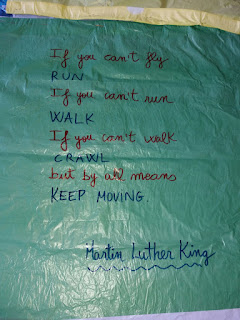 If you can't fly
RUN
If you can't run
WALK
If you can't walk
CRAWL
but by all means
KEEP MOVING.
Martin Luther King